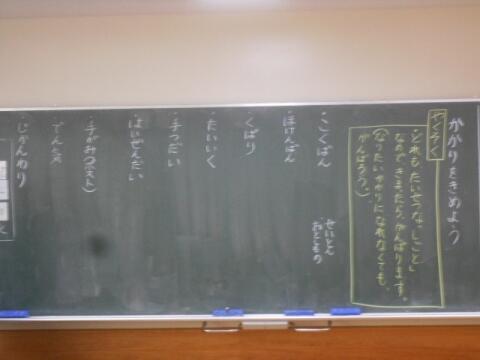 かかりをきめよう
やくそく
・どれも、たいせつな「しごと」
なので きまったら、がんばります。
(なりたいかかりに なれなくても、
がんばろう。)
・こくばん
せいとん
・おとしもの
・ほけんばん
・くばり
・たいいく
・手つだい
・はいぜんだい
・手がみ(ポスト)
・でんき
・じかんわり